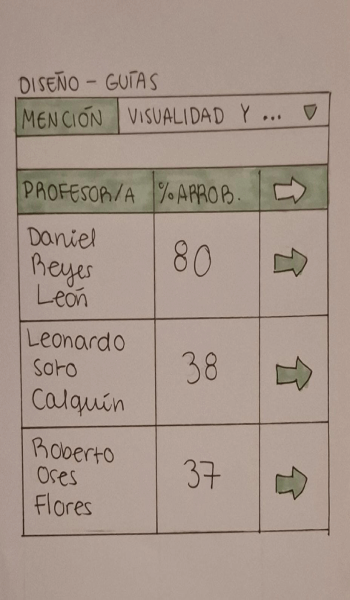 DISEÑO - GUÍAS
MENCIÓN VISUALIDAD Y ...
PROFESOR/A %APROB.
Daniel
Reyes
León
80
Leonardo
Soto
Calquín
38
Roberto
Oses
Flores
37